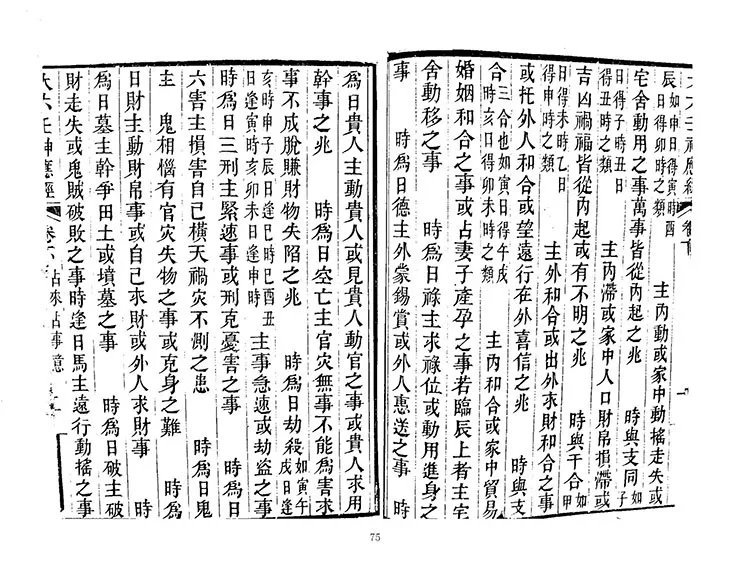 辰如申日得寅時酉日得卯時之類 主內動或家中動搖走失或
宅舍動用之事萬事皆從內起之兆 時與支同如子
日得子時丑日得丑時之類 主內滯或家中人口財帛損滯或
吉凶禍福皆從內起或有不明之兆 時與干合如甲
日得未時乙日得申時之類 主外和合或出外求財和合之事
或托外人和合或望遠行在外喜信之兆 時與支
合三合也如寅日得午戌時亥日得卯未時之類 主內和合或家中貿易
婚姻和合之事或占妻子產孕之事若臨辰上者主宅
舍動移之事 時爲日祿主求祿位或動用進身之
事 時爲日德主外蒙錫賞或外人惠送之事 時
爲日貴人主動貴人或見貴人動官之事或貴人求用
幹事之兆 時爲日空亡主官灾無事不能爲害求
事不成脫賺財物失陷之兆 時爲日劫殺如寅午戌日逢
亥時申子辰日逢巳時巳酉丑日逢寅時亥卯未日逢申時 主事急速或劫盜之事
時爲日三刑主緊速事或刑克憂害之事 時爲日
六害主損害自己橫天禍灾不測之患 時爲日鬼
主 鬼相惱有官灾失物之事或克身之難 時爲
日財主動財帛事或自己求財或外人求財事 時
爲日墓主幹爭田土或墳墓之事 時爲日破主破
財走失或鬼賊破敗之事時逢日馬主遠行動搖之事
大六壬神應經 占來占事意
75